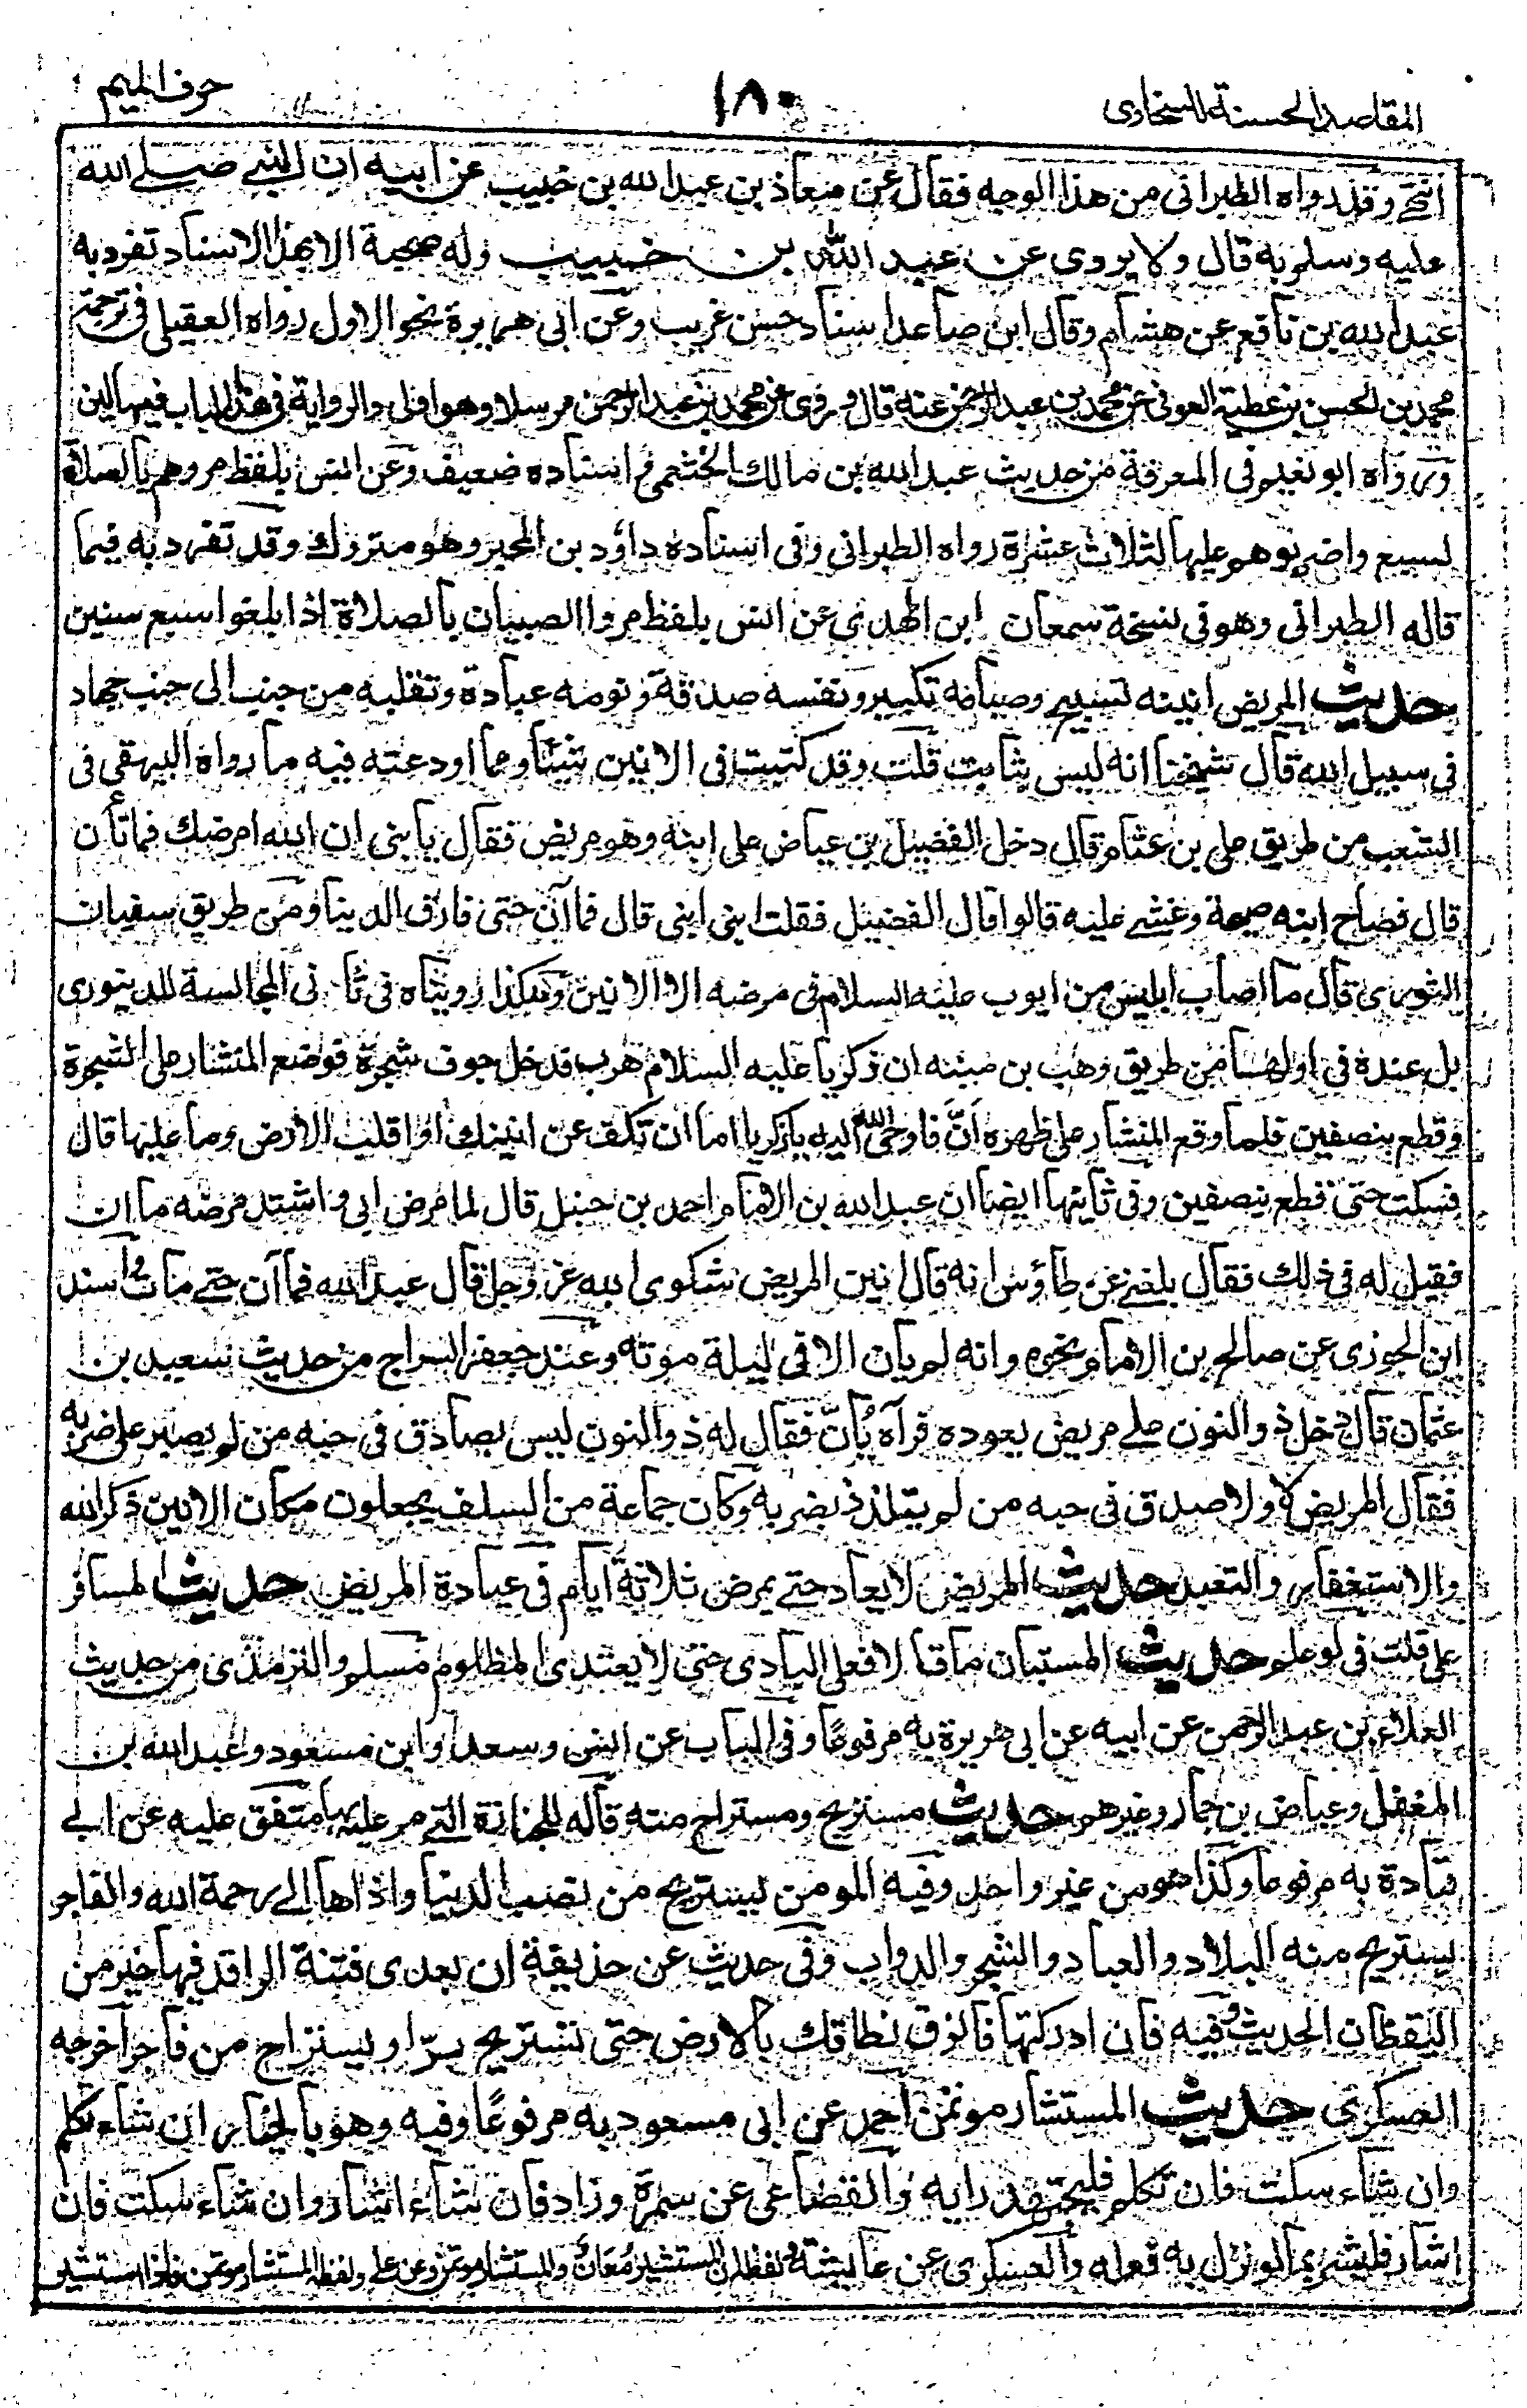 المقاصد الحسنة للسخاوى
١٨٠
حرف الميم
انتهى وقد رواه الطبرانى من هذا الوجه فقال عن معاذ بن عبد الله بن خبيب عن ابيه ان النبى صلے الله
عليه وسلم به قال ولا يروى عن عبد الله بن خبيب وله صحبة الا بهذا الاسناد تفرد به
عبد الله بن نافع عن هشام وقال ابن صاعد اسناد حسن غريب وعن ابى هريرة نحو الاول رواه العقيلى فى ترجمة
محمد بن الحسن بن عطية العوفى عن محمد بن عبد الرحمن عنه قال وروى عن محمد بن عبد الرحمن مرسلا وهو اولى والرواية فى هذا الباب فيها لين
ورواه ابو نعيم فى المعرفة من حديث عبد الله بن مالك الخثعمى واسناده ضعيف وعن انس بلفظ مروهم بالصلاة
لسبع واضربوهم عليها لثلاث عشرة رواه الطبرانى وفى اسناده داود بن المحبر وهو متروك وقد تفرد به فيما
قاله الطبرانى وهو فى نسخة سمعان ابن المهدى عن انس بلفظ مروا الصبيان بالصلاة اذا بلغوا سبع سنين
حديث المريض انينه تسبيح وصياحه تكبير ونفسه صدقة ونومه عبادة وتقلبه من جنب الى جنب جهاد
فى سبيل الله قال شيخنا انه ليس بثابت قلت وقد كتبت فى الانين شيئا ومما اودعته فيه ما رواه البيهقى فى
الشعب من طريق على بن عثام قال دخل الفضيل بن عياض على ابنه وهو مريض فقال يا بنى ان الله امرضك فما تأن
قال فصاح ابنه صيحة وغشے عليه قالوا قال الفضيل فقلت ابنى ابنى قال فما آن حتى فارق الدنيا ومن طريق سفيان
الثورى قال ما اصاب ابليس من ايوب عليه السلام فى مرضه الا الانين وهكذا رويناه فى ثا نى المجالسة للدينورى
بل عنده فى اولها من طريق وهب بن منبه ان زكريا عليه السلام هرب فدخل جوف شجرة فوضع المنشار على الشجرة
وقطع بنصفين فلما وقع المنشار على ظهره اَنَّ فاوحى الله اليه يا زكريا اما ان تكف عن انينك او اقلب الارض وما عليها قال
فسكت حتى قطع بنصفين وفى ثانيها ايضا ان عبد الله بن الامام احمد بن حنبل قال لما مرض ابى واشتد مرضه ما ان
فقيل له فى ذلك فقال بلغنے عن طاؤس انه قال انين المريض شكوى الله عز وجل قال عبد الله فما آن حتے مات واسند
ابن الجوزى عن صالح بن الامام نحوه وانه لم يان الا فى ليلة موته وعند جعفر السراج من حديث سعيد بن
عثمان قال دخل ذو النون علے مريض يعوده فرآه يَاَنَّ فقال له ذو النون ليس بصادق فى حبه من لم يصبر على ضربه
فقال المريض لا ولا صدق فى حبه من لم يتلذذ بضربه وكان جماعة من السلف يجعلون مكان الانين ذكر الله
والاستغفار والتعبد حديث المريض لا يعاد حتے يمرض ثلاثة ايام فى عيادة المريض حديث المسافر
على قلت فى لو علم حديث المستبان ما قالا فعلى البادى حتى لا يعتدى المظلوم مسلم والترمذى من حديث
العلاء بن عبد الرحمن عن ابيه عن ابى هريرة به مرفوعًا وفى الباب عن انس وسعد وابن مسعود وعبد الله بن
المغفل وعياض بن حمار وغيرهم حديث مستريح ومستراح منه قاله للجنازة التے مر عليه بها متفق عليه عن ابے
قتادة به مرفوعا وكذا هو من غير واحد وفيه المومن ليستريح من نصب الدنيا واذاها الے رحمة الله والفاجر
يستريح منه البلاد والعباد والشجر والدواب وفى حديث عن حذيفة ان بعدى فتنة الراقد فيها خير من
اليقظان الحديث وفيه فان ادركتها فالزق نطاقك بالارض حتى تستريح برّا ويستراح من فاجر اخرجه
العسكرى حديث المستشار موتمن احمد عن ابى مسعود به مرفوعًا وفيه وهو بالخيار ان شاء تكلم
وان شاء سكت فان تكلم فليجتهد رايه والقضاعى عن سمرة وزاد فان شاء اشار وان شاء سكت فان
اشار فليشر بما لو نزل به فعله والعسكرى عن عايشة ولفظه ان المستشير مُعَانٌ والمستشار موتمن وعن على ولفظه المستشار موتمن فاذا استشير